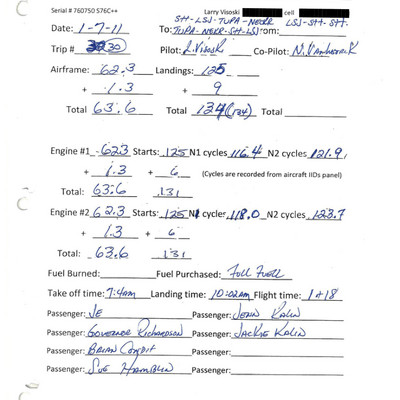 Serial # 760750 S76C++ Larry Visoski cell
Date: 1-7-11 To: STT-LSJ-TUPA-NEKR LSJ-STT-STT.
TUPA-NEKR-STT-LSJ From:
Trip # 30 Pilot: L. Visoski Co-Pilot:
Airframe: 62.3 Landings: 125
+ 1.3 + 9
Total 63.6 Total 134 (134) Total
Engine #1 62.3 Starts: 125 N1 cycles 116.4 N2 cycles 121.9
+ 1.3 + 6 (Cycles are recorded from aircraft IIDs panel)
Total: 63.6 131
Engine #2 62.3 Starts: 125 N1 cycles 118.0 N2 cycles 123.7
+ 1.3 + 6
Total: 63.6 131
Fuel Burned: Fuel Purchased: Full Fuel
Take off time: 7:4am Landing time: 10:02am Flight time: 1+18
Passenger: JE Passenger: John Kalin
Passenger: Governor Richardson Passenger: Jackie Kalin
Passenger: Brian Condit Passenger:
Passenger: Sue Hamblin Passenger: